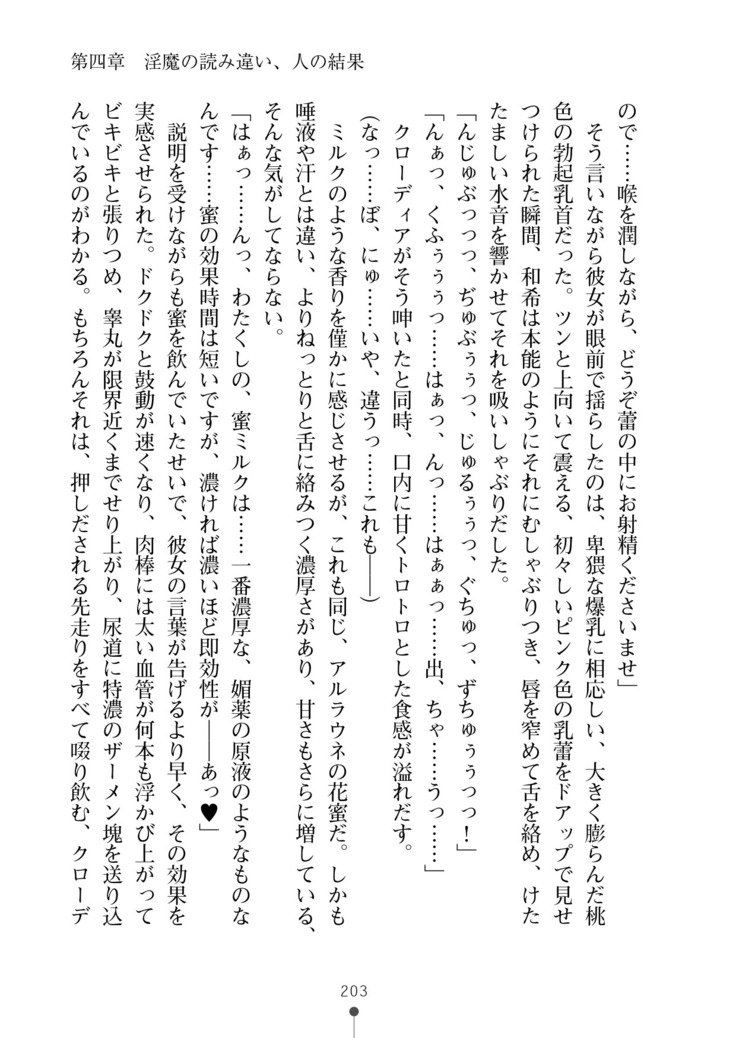 第四章　淫魔の読み違い、人の結果
ので……喉を潤しながら、どうぞ蕾の中にお射精くださいませ」
　そう言いながら彼女が眼前で揺らしたのは、卑猥な爆乳に相応しい、大きく膨らんだ桃
色の勃起乳首だった。ツンと上向いて震える、初々しいピンク色の乳蕾をドアップで見せ
つけられた瞬間、和希は本能のようにそれにむしゃぶりつき、唇を窄めて舌を絡め、けた
たましい水音を響かせてそれを吸いしゃぶりだした。
「んじゅぶっっっ、ぢゅぶぅぅっ、じゅるぅぅっ、ぐちゅっ、ずちゅぅぅっっ！」
「んぁっ、くふぅぅぅっ……はぁっ、んっ……はぁぁっ……出、ちゃ……うっ……」
　クローディアがそう呻いたと同時、口内に甘くトロトロとした食感が溢れだす。
（なっ……ぼ、にゅ……いや、違うっ……これも――）
　ミルクのような香りを僅かに感じさせるが、これも同じ、アルラウネの花蜜だ。しかも
唾液や汗とは違い、よりねっとりと舌に絡みつく濃厚さがあり、甘さもさらに増している、
そんな気がしてならない。
「はぁっ……んっ、わたくしの、蜜ミルクは……一番濃厚な、媚薬の原液のようなものな
んです……蜜の効果時間は短いですが、濃ければ濃いほど即効性が――あっ♥」
　説明を受けながらも蜜を飲んでいたせいで、彼女の言葉が告げるより早く、その効果を
実感させられた。ドクドクと鼓動が速くなり、肉棒には太い血管が何本も浮かび上がって
ビキビキと張りつめ、睾丸が限界近くまでせり上がり、尿道に特濃のザーメン塊を送り込
んでいるのがわかる。もちろんそれは、押しだされる先走りをすべて啜り飲む、クローデ
203